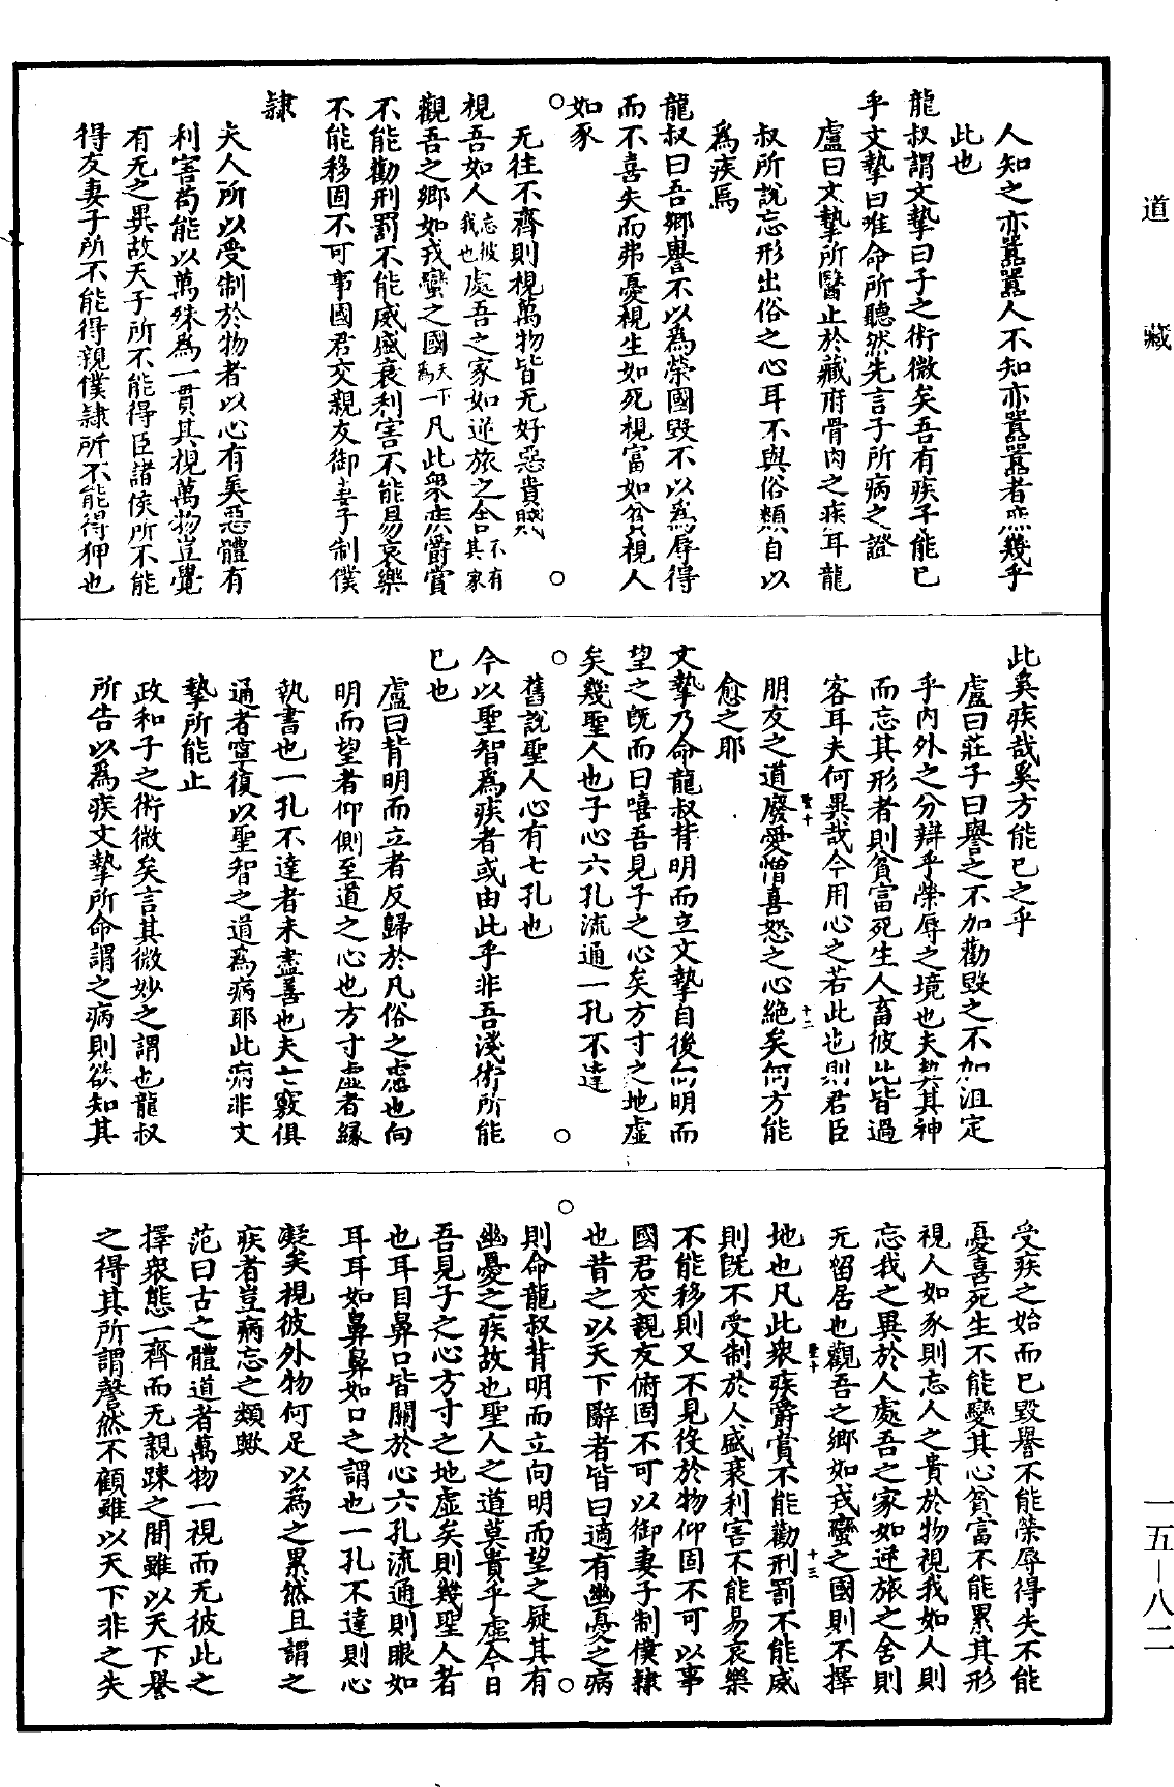 道藏
人知之亦囂囂人不知亦囂囂者庶幾乎
此也
龍叔謂文摯曰子之術微矣吾有疾子能已
乎文摯曰唯命所聽然先言子所病之證
盧曰文摯所醫止於藏府骨肉之疾耳龍
叔所說忘形出俗之心耳不與俗類自以
為疾焉
龍叔曰吾鄉譽不以為榮國毀不以為辱得
而不喜失而弗憂視生如死視富如貧視人
如豕
无往不齊則視萬物皆无好惡貴賤
視吾如人忘彼我也處吾之家如逆旅之舍不有其家
觀吾之鄉如戎蠻之國天下為一凡此衆疾爵賞
不能勸刑罰不能威盛衰利害不能易哀樂
不能移固不可事國君交親友御妻子制僕
隸
夫人所以受制於物者以心有美惡體有
利害苟能以萬殊為一貫其視萬物豈覺
有无之異故天子所不能得臣諸侯所不能
得友妻子所不能得親僕隸所不能得狎也
此奚疾哉奚方能已之乎
盧曰莊子曰譽之不加勸毀之不加沮定
乎內外之分辯乎榮辱之境也夫契其神
而忘其形者則貧富死生人畜彼此皆過
客耳夫何異哉今用心之若此也則君臣
朋友之道廢愛憎喜怒之心絕矣何方能
愈之耶
文摯乃命龍叔背明而立文摯自後向明而
望之既而曰嘻吾見子之心矣方寸之地虛
矣幾聖人也子心六孔流通一孔不達
舊說聖人心有七孔也
今以聖智為疾者或由此乎非吾淺術所能
已也
盧曰背明而立者反歸於凡俗之慮也向
明而望者仰側至道之心也方寸虛者緣
執書也一孔不達者未盡善也夫七竅俱
通者寧復以聖智之道為病耶此病非文
摯所能止
政和子之術微矣言其微妙之謂也龍叔
所告以為疾文摯所命謂之病則欲知其
受疾之始而已毀譽不能榮辱得失不能
憂喜死生不能變其心貧富不能累其形
視人如豕則忘人之貴於物視我如人則
忘我之異於人處吾之家如逆旅之舍則
无留居也觀吾之鄉如戎蠻之國則不擇
地也凡此衆疾爵賞不能勸刑罰不能威
則既不受制於人盛衰利害不能易哀樂
不能移則又不見役於物仰固不可以事
國君交親友俯固不可以御妻子制僕隸
也昔之以天下辭者皆曰適有幽憂之病
則命龍叔背明而立向明而望之疑其有
幽憂之疾故也聖人之道莫貴乎虛今日
吾見子之心方寸之地虛矣則幾聖人者
也耳目鼻口皆關於心六孔流通則眼如
耳耳如鼻鼻如口之謂也一孔不達則心
凝矣視彼外物何足以為之累然且謂之
疾者豈病忘之類歟
范曰古之體道者萬物一視而无彼此之
擇衆態一齊而无親踈之間雖以天下譽
之得其所謂謷然不顧雖以天下非之失
一五—八二